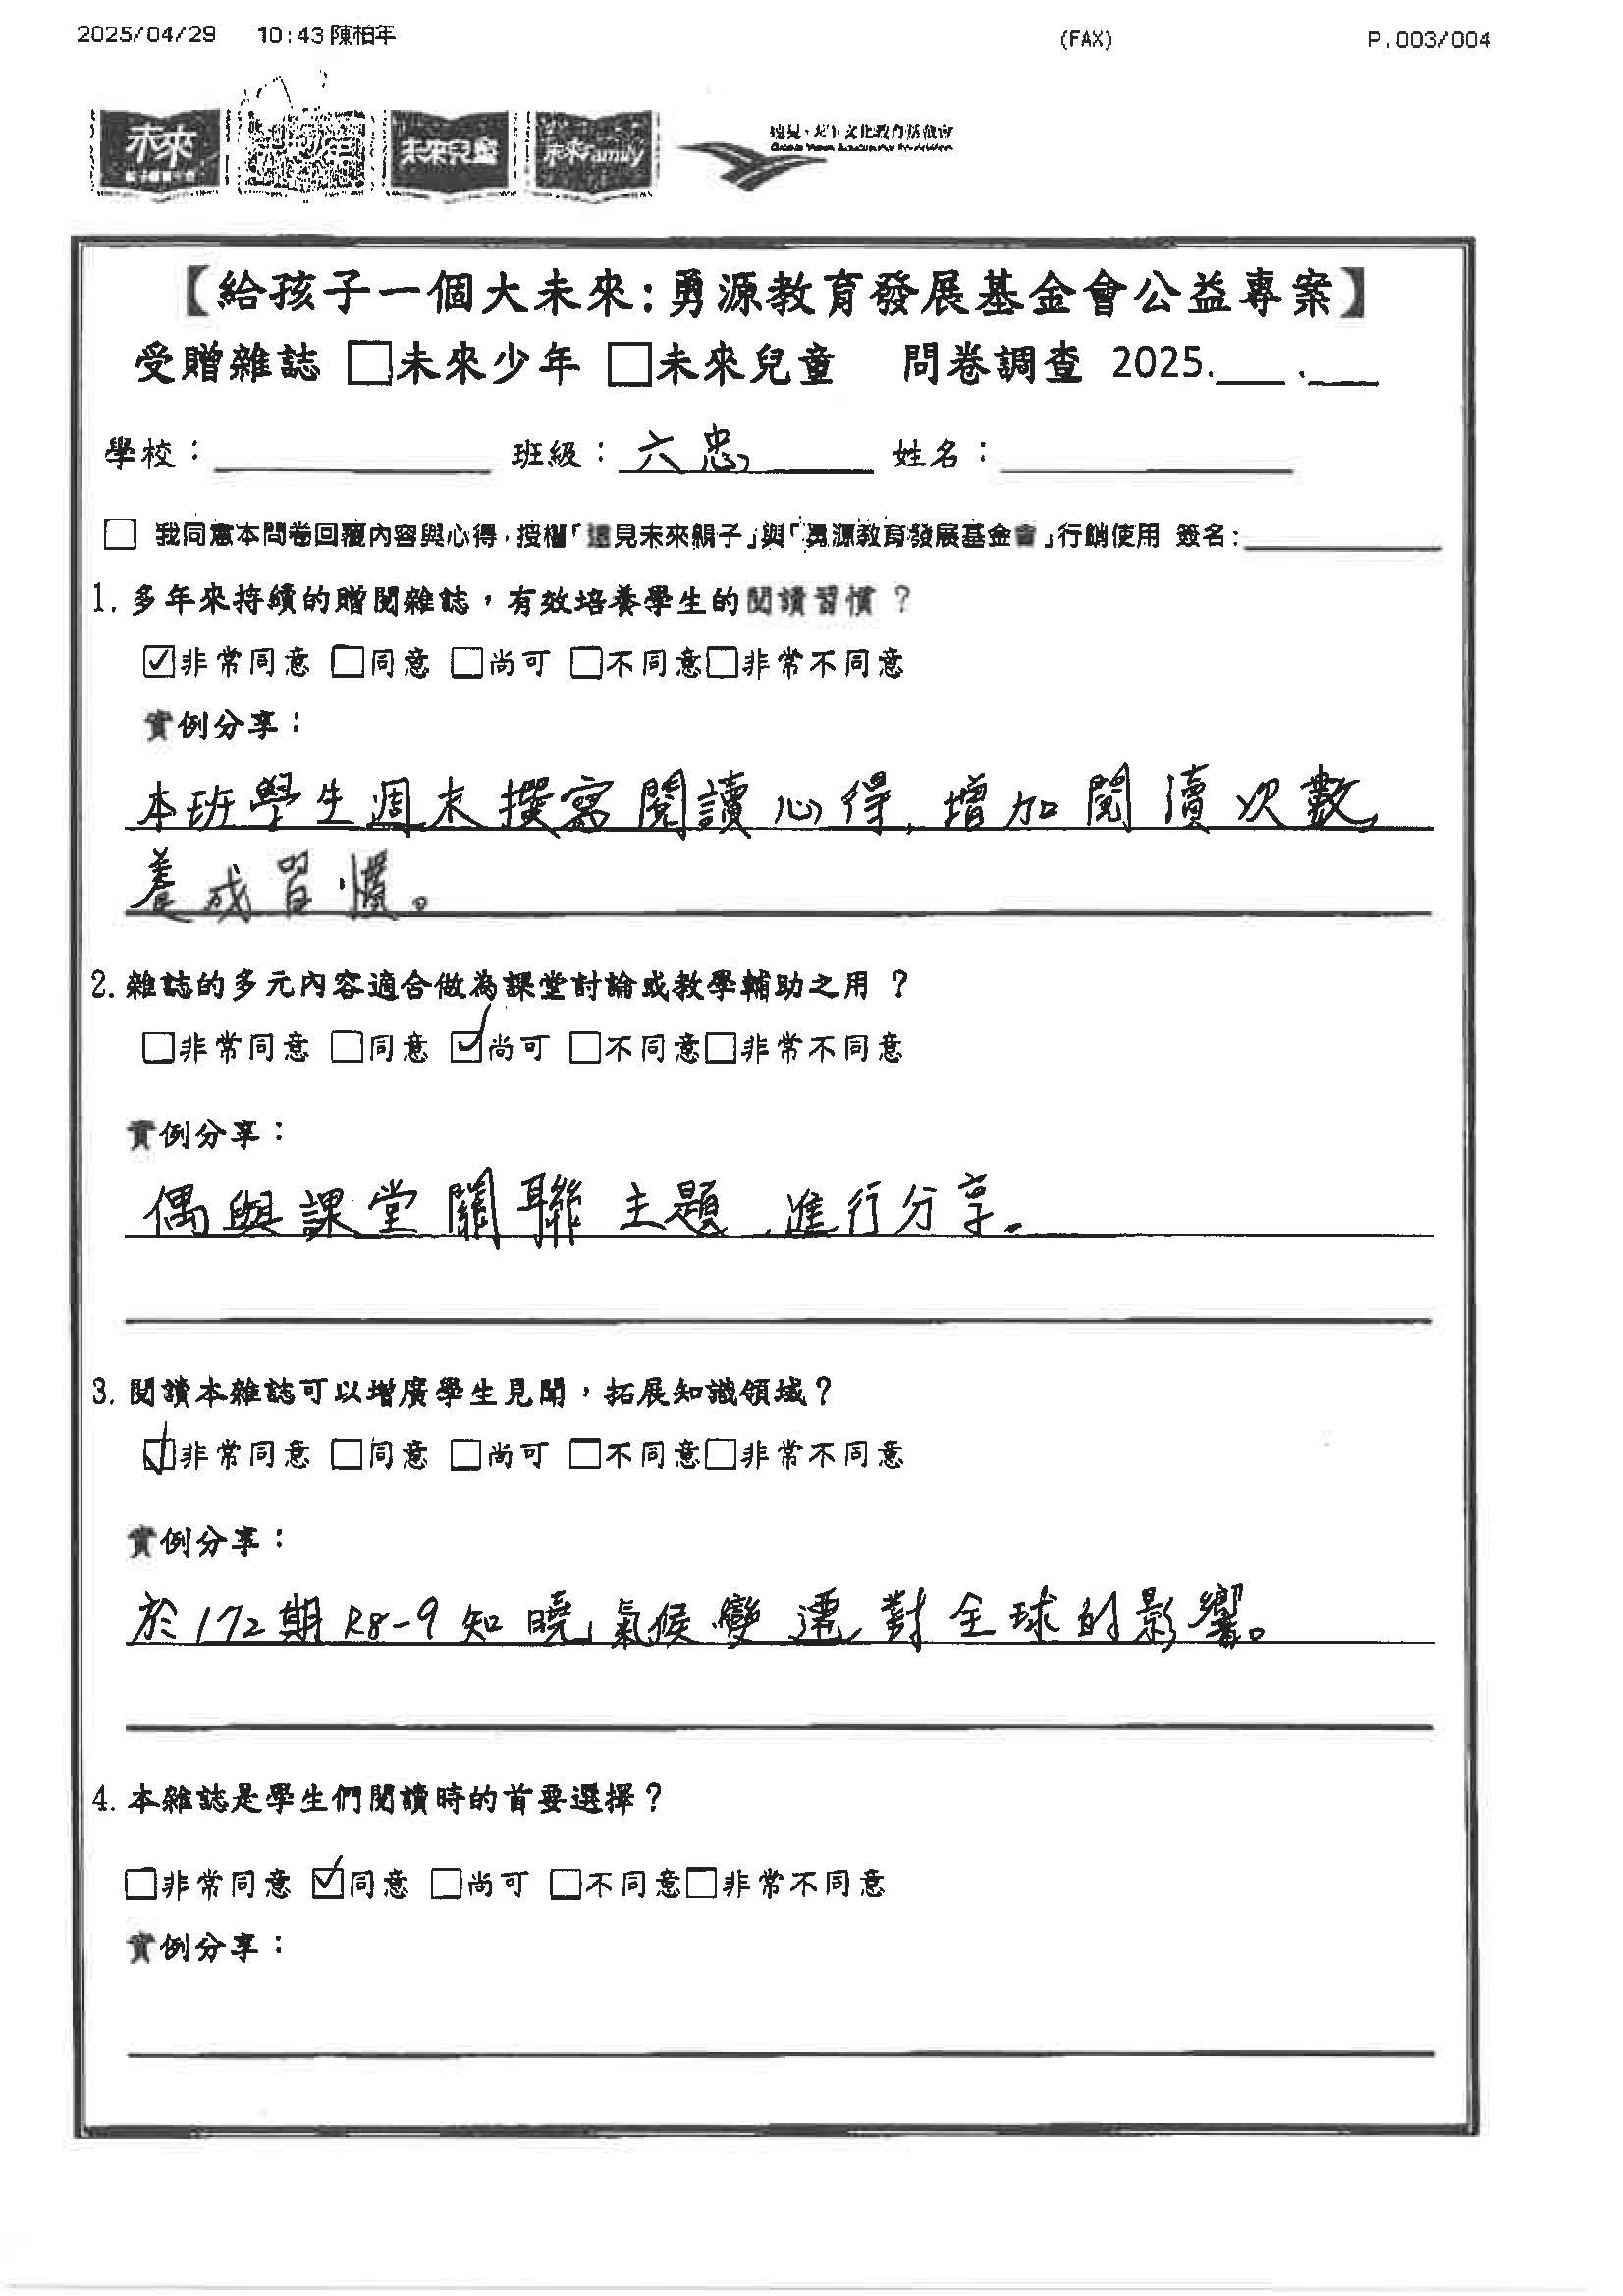 2025/04/29 10:43 陳柏年 (FAX) P.003/004
未來 未來兒童 未來Family 遠見・天下文化教育基金會
【給孩子一個大未來:勇源教育發展基金會公益專案】
受贈雜誌 □未來少年 □未來兒童 問卷調查 2025.___.___
學校：________ 班級：六忠 姓名：________
□ 我同意本問卷回覆內容與心得,授權「遠見未來親子」與「勇源教育發展基金會」行銷使用 簽名:________
1. 多年來持續的贈閱雜誌，有效培養學生的閱讀習慣？
☑非常同意 □同意 □尚可 □不同意□非常不同意
實例分享：
本班學生週末撰寫閱讀心得,增加閱讀次數,
養成習慣。
2. 雜誌的多元內容適合做為課堂討論或教學輔助之用？
□非常同意 □同意 ☑尚可 □不同意□非常不同意
實例分享：
偶與課堂關聯主題,進行分享。
3. 閱讀本雜誌可以增廣學生見聞，拓展知識領域？
☑非常同意 □同意 □尚可 □不同意□非常不同意
實例分享：
於172期R8-9知曉氣候變遷對全球的影響。
4. 本雜誌是學生們閱讀時的首要選擇？
□非常同意 ☑同意 □尚可 □不同意□非常不同意
實例分享：